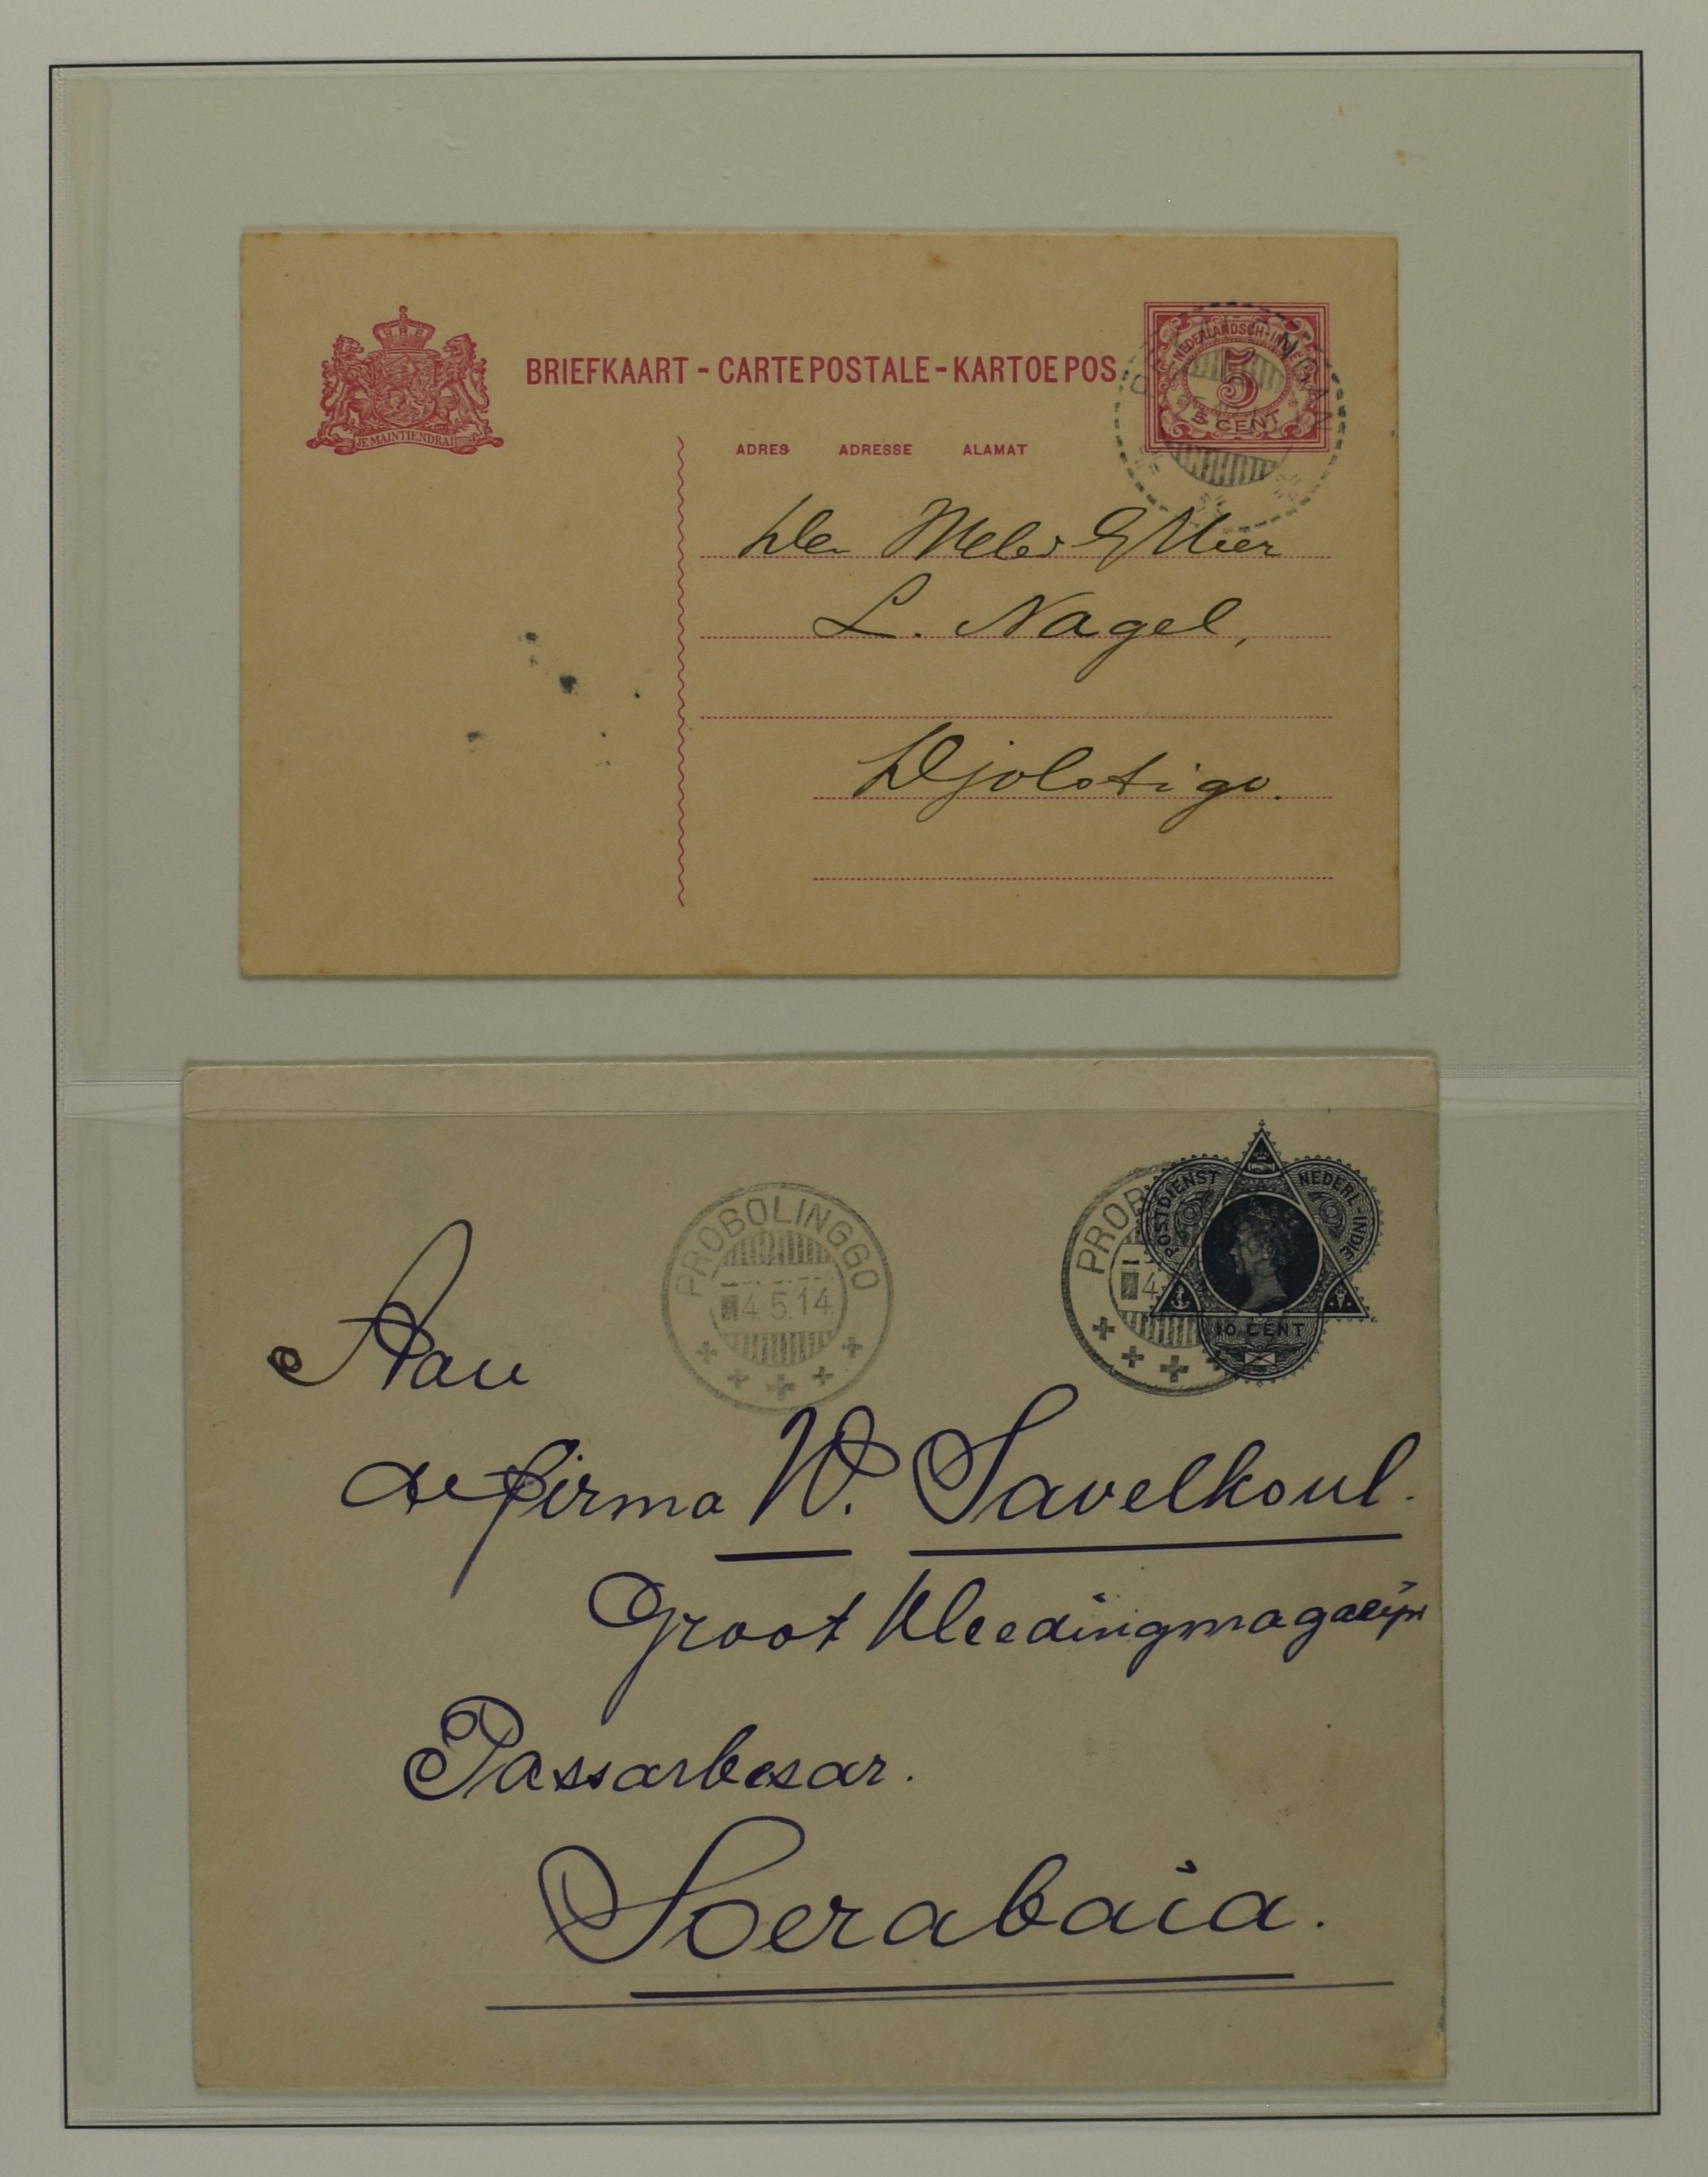 JE MAINTIENDRAI
BRIEFKAART - CARTE POSTALE - KARTOE POS
NEDERLANDSCH-INDIË
5
5 CENT
ADRES ADRESSE ALAMAT
Den
L. Nagel,
Djolotigo.
PROBOLINGGO
4.5.14
PROB
4
POSTDIENST NEDERL-INDIE
10 CENT
Aan
de firma W. Savelkoul.
Groot Kleedingmagazijn
Passarbesar.
Soerabaia.